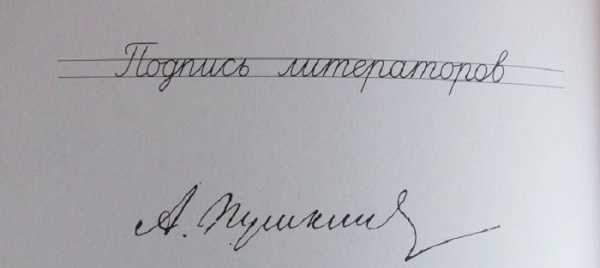 Подпись литераторов
А. Пушкинъ